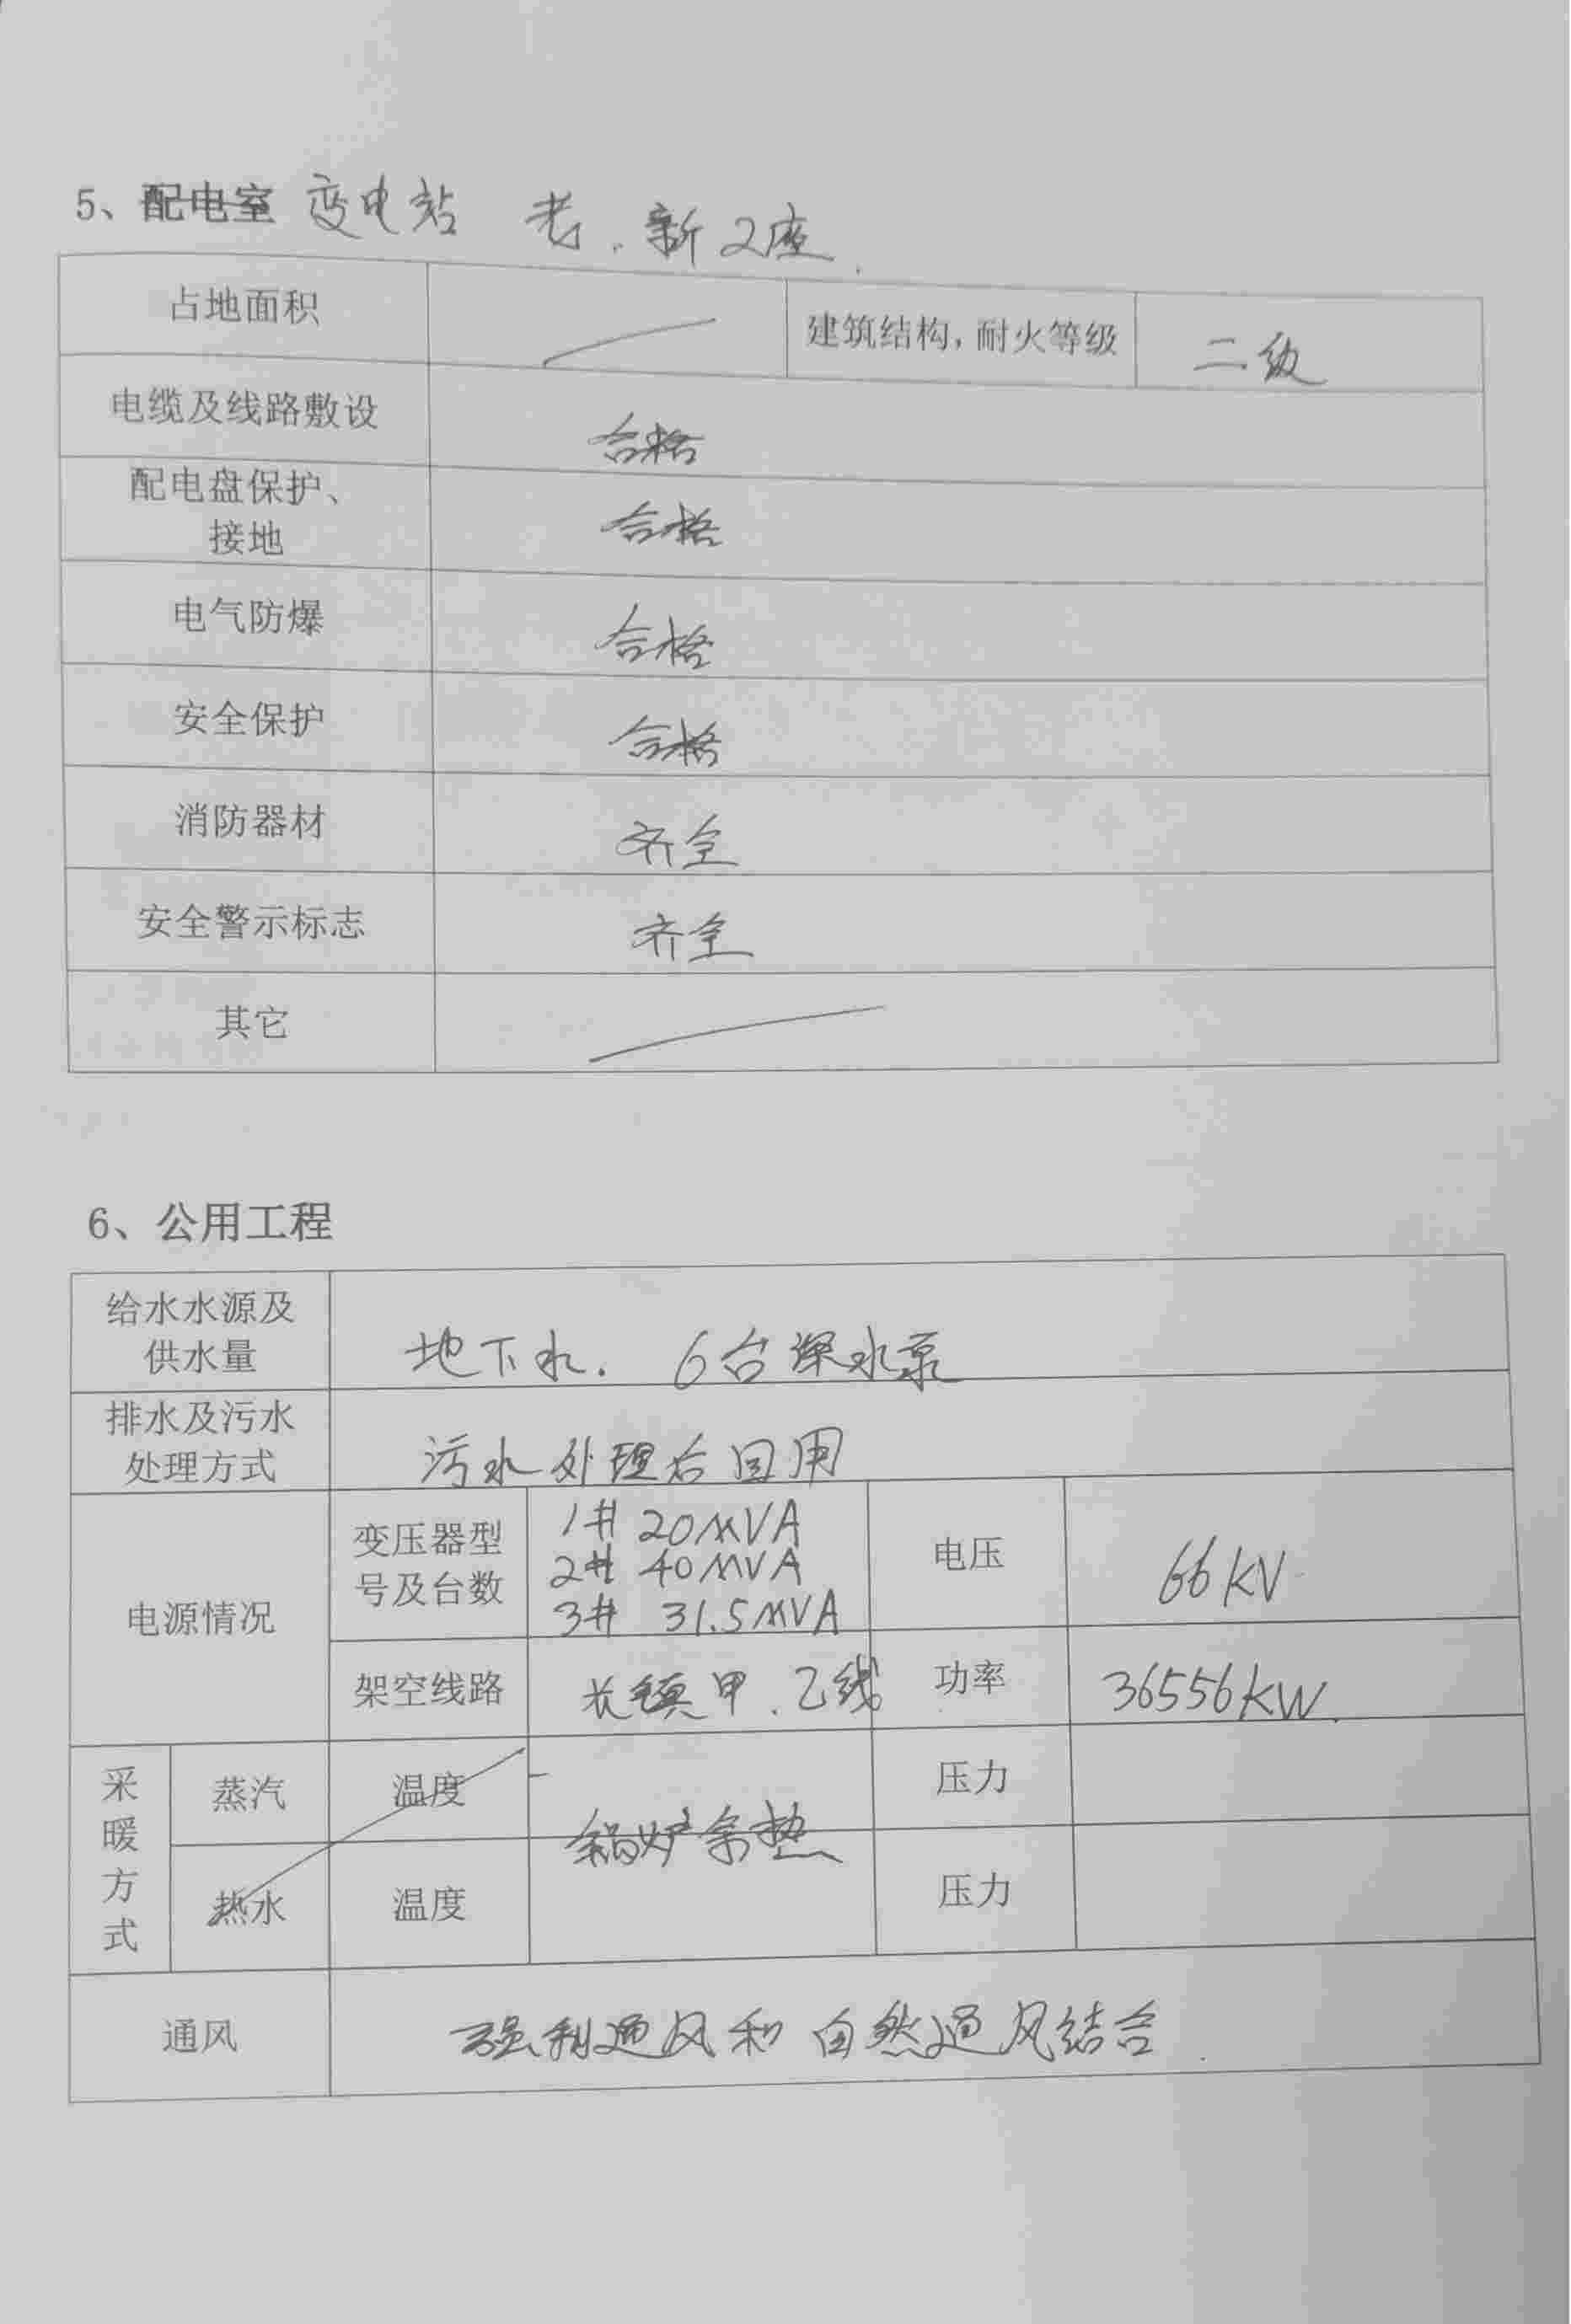 5、配电室 变电站 老、新2座.
占地面积 建筑结构，耐火等级 二级
电缆及线路敷设 合格
配电盘保护、
接地 合格
电气防爆 合格
安全保护 合格
消防器材 齐全
安全警示标志 齐全
其它
6、公用工程
给水水源及
供水量 地下水. 6台深水泵
排水及污水
处理方式 污水处理后回用
电源情况 变压器型
号及台数 1# 20MVA
2# 40MVA
3# 31.5MVA
电压 66kV
架空线路 长镇甲、乙线 功率 36556kW.
采暖方式 蒸汽 温度 压力
锅炉余热
热水 温度 压力
通风 强制通风和自然通风结合.